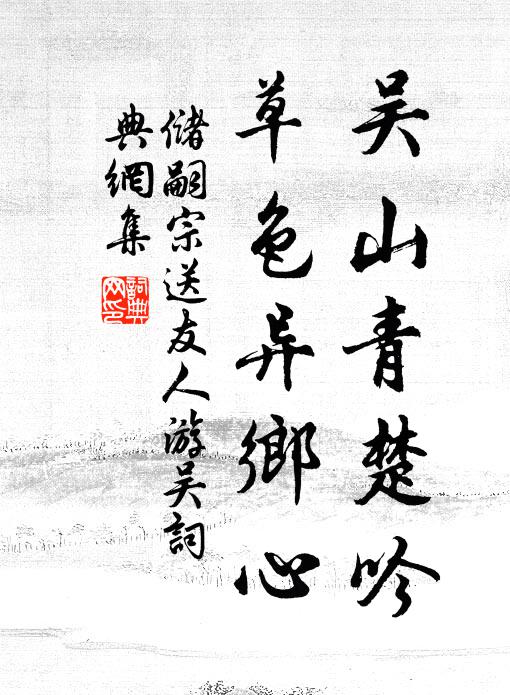 吴山青楚吟
草色异鄉心
儲嗣宗送友人游吴詞
典網集
詞典
网印